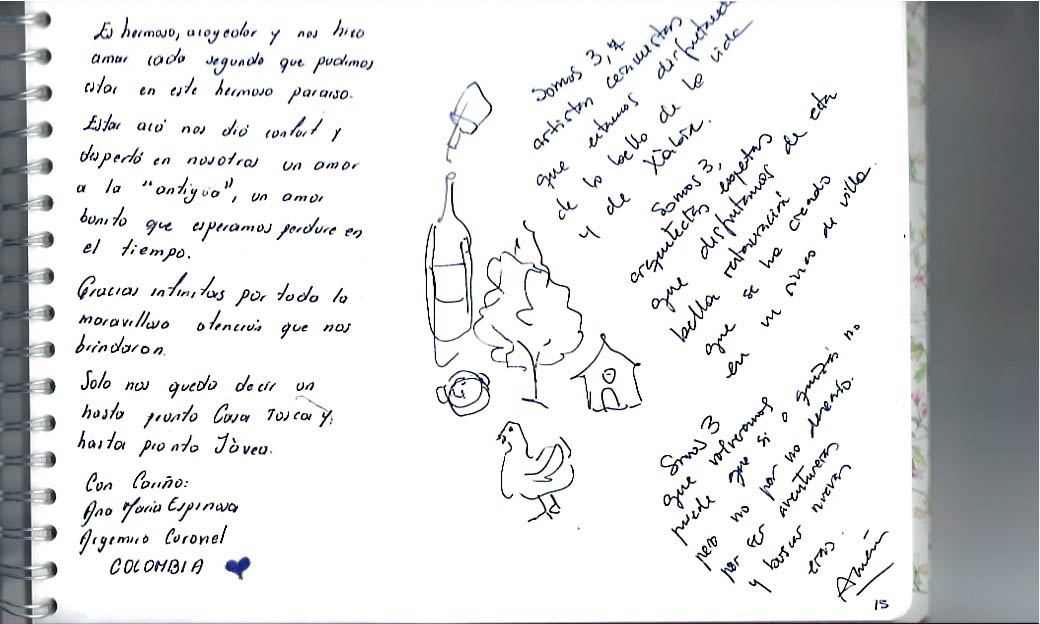 Es hermoso, acogedor y nos hizo
amar cada segundo que pudimos
estar en este hermoso paraiso.
Estar acá nos dió confort y
despertó en nosotras un amor
a la "antigua", un amor
bonito que esperamos perdure en
el tiempo.
Gracias infinitas por toda la
maravillosa atención que nos
brindaron.
Solo nos queda decir un
hasta pronto Casa Tosca y
hasta pronto Jávea.
Con Cariño:
Ana Maria Espinosa
Argemiro Coronel
COLOMBIA
Somos 3, 
artistas ceramistas
que estamos disfrutando
de lo bello de la vida
y de Xàbia.
Somos 3,
arquitectas expertas
que disfrutamos de esta
bella restauración
que se ha creado
en un rinco de villa.
Somos 3
que volveremos
puede que si o quizás no
pero no por no desearlo.
por ser aventureras
y buscar nuevas
eras.
15